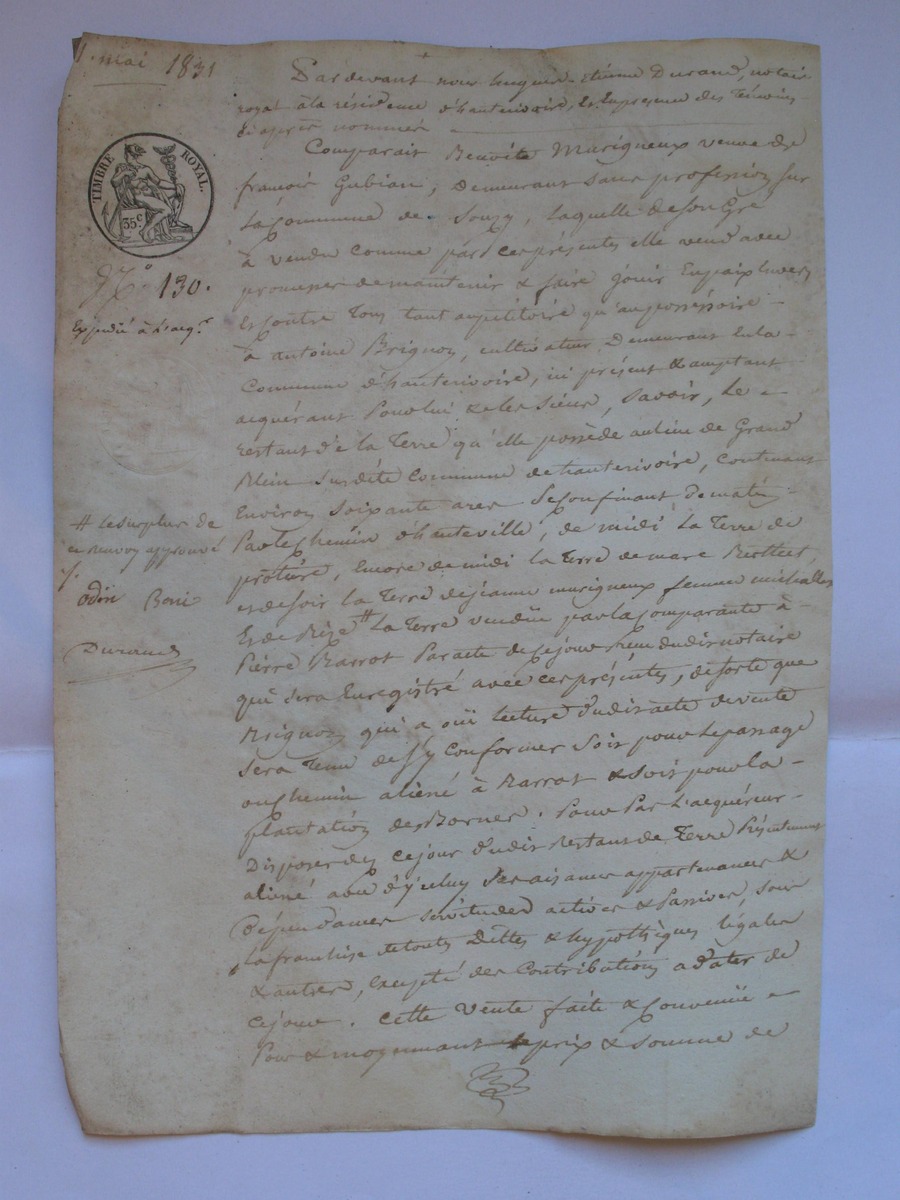 1. mai 1831
TIMBRE ROYAL.
35 c.
N.o 130.
Expédié à l'acq.r
# Le surplus de
ce renvoy approuvé
Durand
Pardevant nous hugues-Etienne Durand, notaire
royal à la résidence d'hauterivoire, Et En présence des Témoins
ci après nommés
Comparait Benoite Marigneux veuve de
françois Gubian, demeurant sans profession sur
La Commune de Souzy, laquelle de son Gré
à vendu comme par ces présentes elle vend avec
promesses de maintenir & faire jouir En paix Envers
Et Contre Tous tant au pétitoire qu'au possessoire
à antoine Brignon, cultivateur Demeurant En la
Commune d'hauterivoire, ici présent & acceptant
acquérant Pour lui & les Siens, Savoir, Le
restant de la Terre qu'elle possède au lieu de Grand
sur dite Commune de hauterivoire, contenant
Environ soixante ares Se Confinant de matin
Par le Chemin d'hauteville, de midi La Terre de
protière, Encore de midi la Terre de marc
et de soir la Terre de jeanne marigneux femme
Et de Bize # La Terre vendüe par la Comparante à
Pierre Barrot Par acte de Ce jour Recu dudit notaire
qui sera Enregistré avec ces présentes, de sorte que
Brignon qui a oüi lecture dudit acte de vente
sera Tenu de s'y Conformer Soit pour Le passage
ou Chemin aliéné à Barrot & soit pour la
plantation des Bornes. Pour Par L'acquéreur
Disposer dès ce jour dudit Restant de Terre Présentement
aliéné avec d'ycelui Ses aisances appartenances &
dépendances servitudes actives & Passives, sous
La franchise de toutes Dettes & hypothèques légales
& autres, Excepté des Contributions a dater de
Ce jour. Cette Vente faite & Convenüe
Pour & moyennant le prix & Somme de